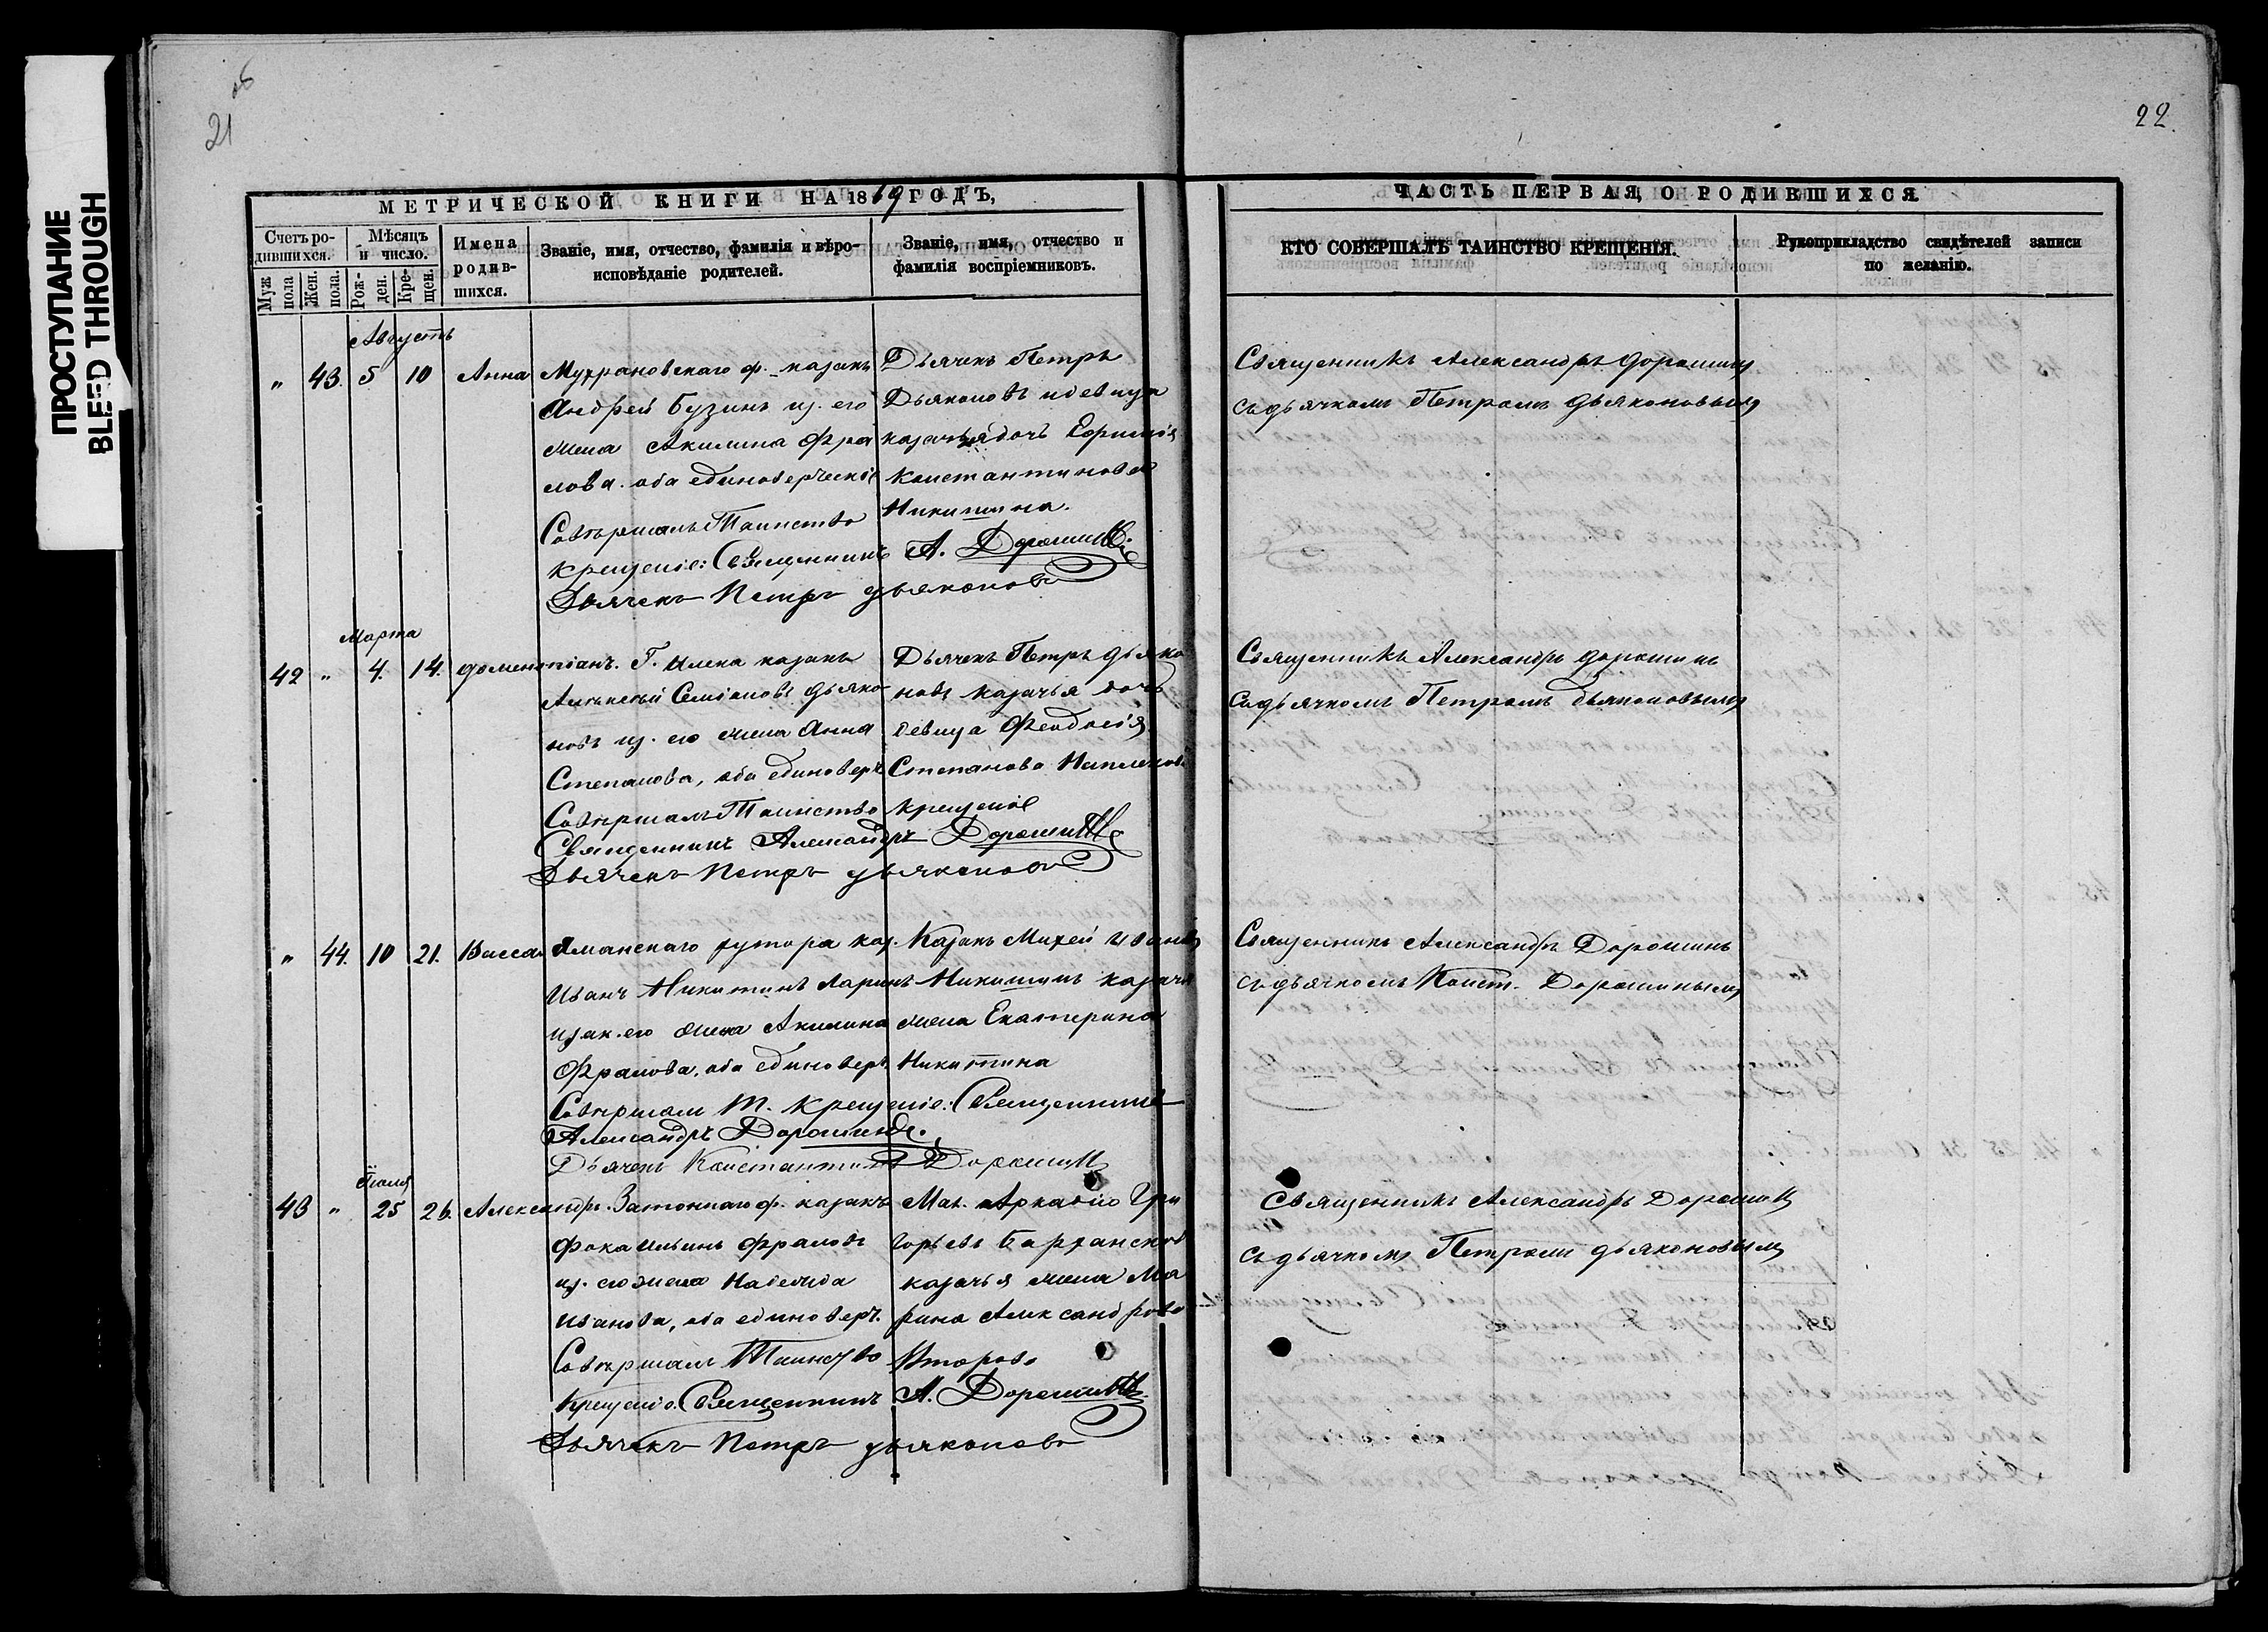 ПРОСТУПАНИЕ
BLEED THROUGH
21
об
22.
МЕТРИЧЕСКОЙ КНИГИ НА 1869 ГОДЪ,
Счетъ ро-
дившихся.
Мѣсяцъ
и число.
Муж
пола
Жен.
пола.
Рож-
ден.
Кре-
щен.
Имена
родив-
шихся.
Званіе, имя, отчество, фамилія и вѣро-
исповѣданіе родителей.
Званіе, имя, отчество и
фамилія воспріемниковъ.
Августъ
" 43. 5 10 Анна
Мухрановскаго ф. казакъ
Андрей Бузинъ из. его
жена Акилина Фра
лова. оба единоверческіе
Совершалъ Таинство
крещеніе: Священникъ А. Дорошинъ.
Дьячекъ Петръ Дьяконовъ
Дьячекъ Петръ
Дьяконовъ и девица
казачья дочь
Константинова
Никишина.
Марта
42 " 4. 14.
Г. Илека казакъ
Алексей Семіоновъ Дьяко
новъ из. его жена Анна
Степанова, оба единоверч
Совершалъ Таинство крещеніе
Священникъ Александръ Дорошинъ
Дьячекъ Петръ Дьяконовъ
Дьячекъ Петръ Дьяко
новъ казачья дочь
девица Феодосія
Степанова
" 44. 10 21. Васса
Яманскаго хутора каз.
Иванъ Никитинъ Ларинъ
и зак. его жена Акилина
Фралова, оба единоверч.
Совершали Т. крещеніе: Священникъ
Александръ Дорошинъ.
Дьячекъ Константинъ Дорошинъ
Казакъ Михей Ивановъ
Никишинъ казачья
жена Екатерина
Никитина
Іюля
43 " 25 26. Александръ.
Затоннаго ф. казакъ
Фока Ильинъ Фраловъ
из. его жена Надежда
Иванова, оба единоверч.
Совершалъ Таинство
Крещеніе. Священникъ А. Дорошинъ
Дьячекъ Петръ Дьяконовъ
Мал. Аркадію Гри
горьевъ
казачья жена Ма
рина Александрова
Второва
ЧАСТЬ ПЕРВАЯ, О РОДИВШИХСЯ
КТО СОВЕРШАЛЪ ТАИНСТВО КРЕЩЕНІЯ.
Рукоприкладство свидѣтелей записи
по желанію.
Священникъ Александръ Дорошинъ
съ дьячкомъ Петромъ Дьяконовымъ
Священникъ Александръ Дорошинъ
съ дьячкомъ Петромъ Дьяконовымъ
Священникъ Александръ Дорошинъ
съ дьячкомъ Конст. Дорошинымъ
Священникъ Александръ Дорошинъ
съ дьячкомъ Петромъ Дьяконовымъ